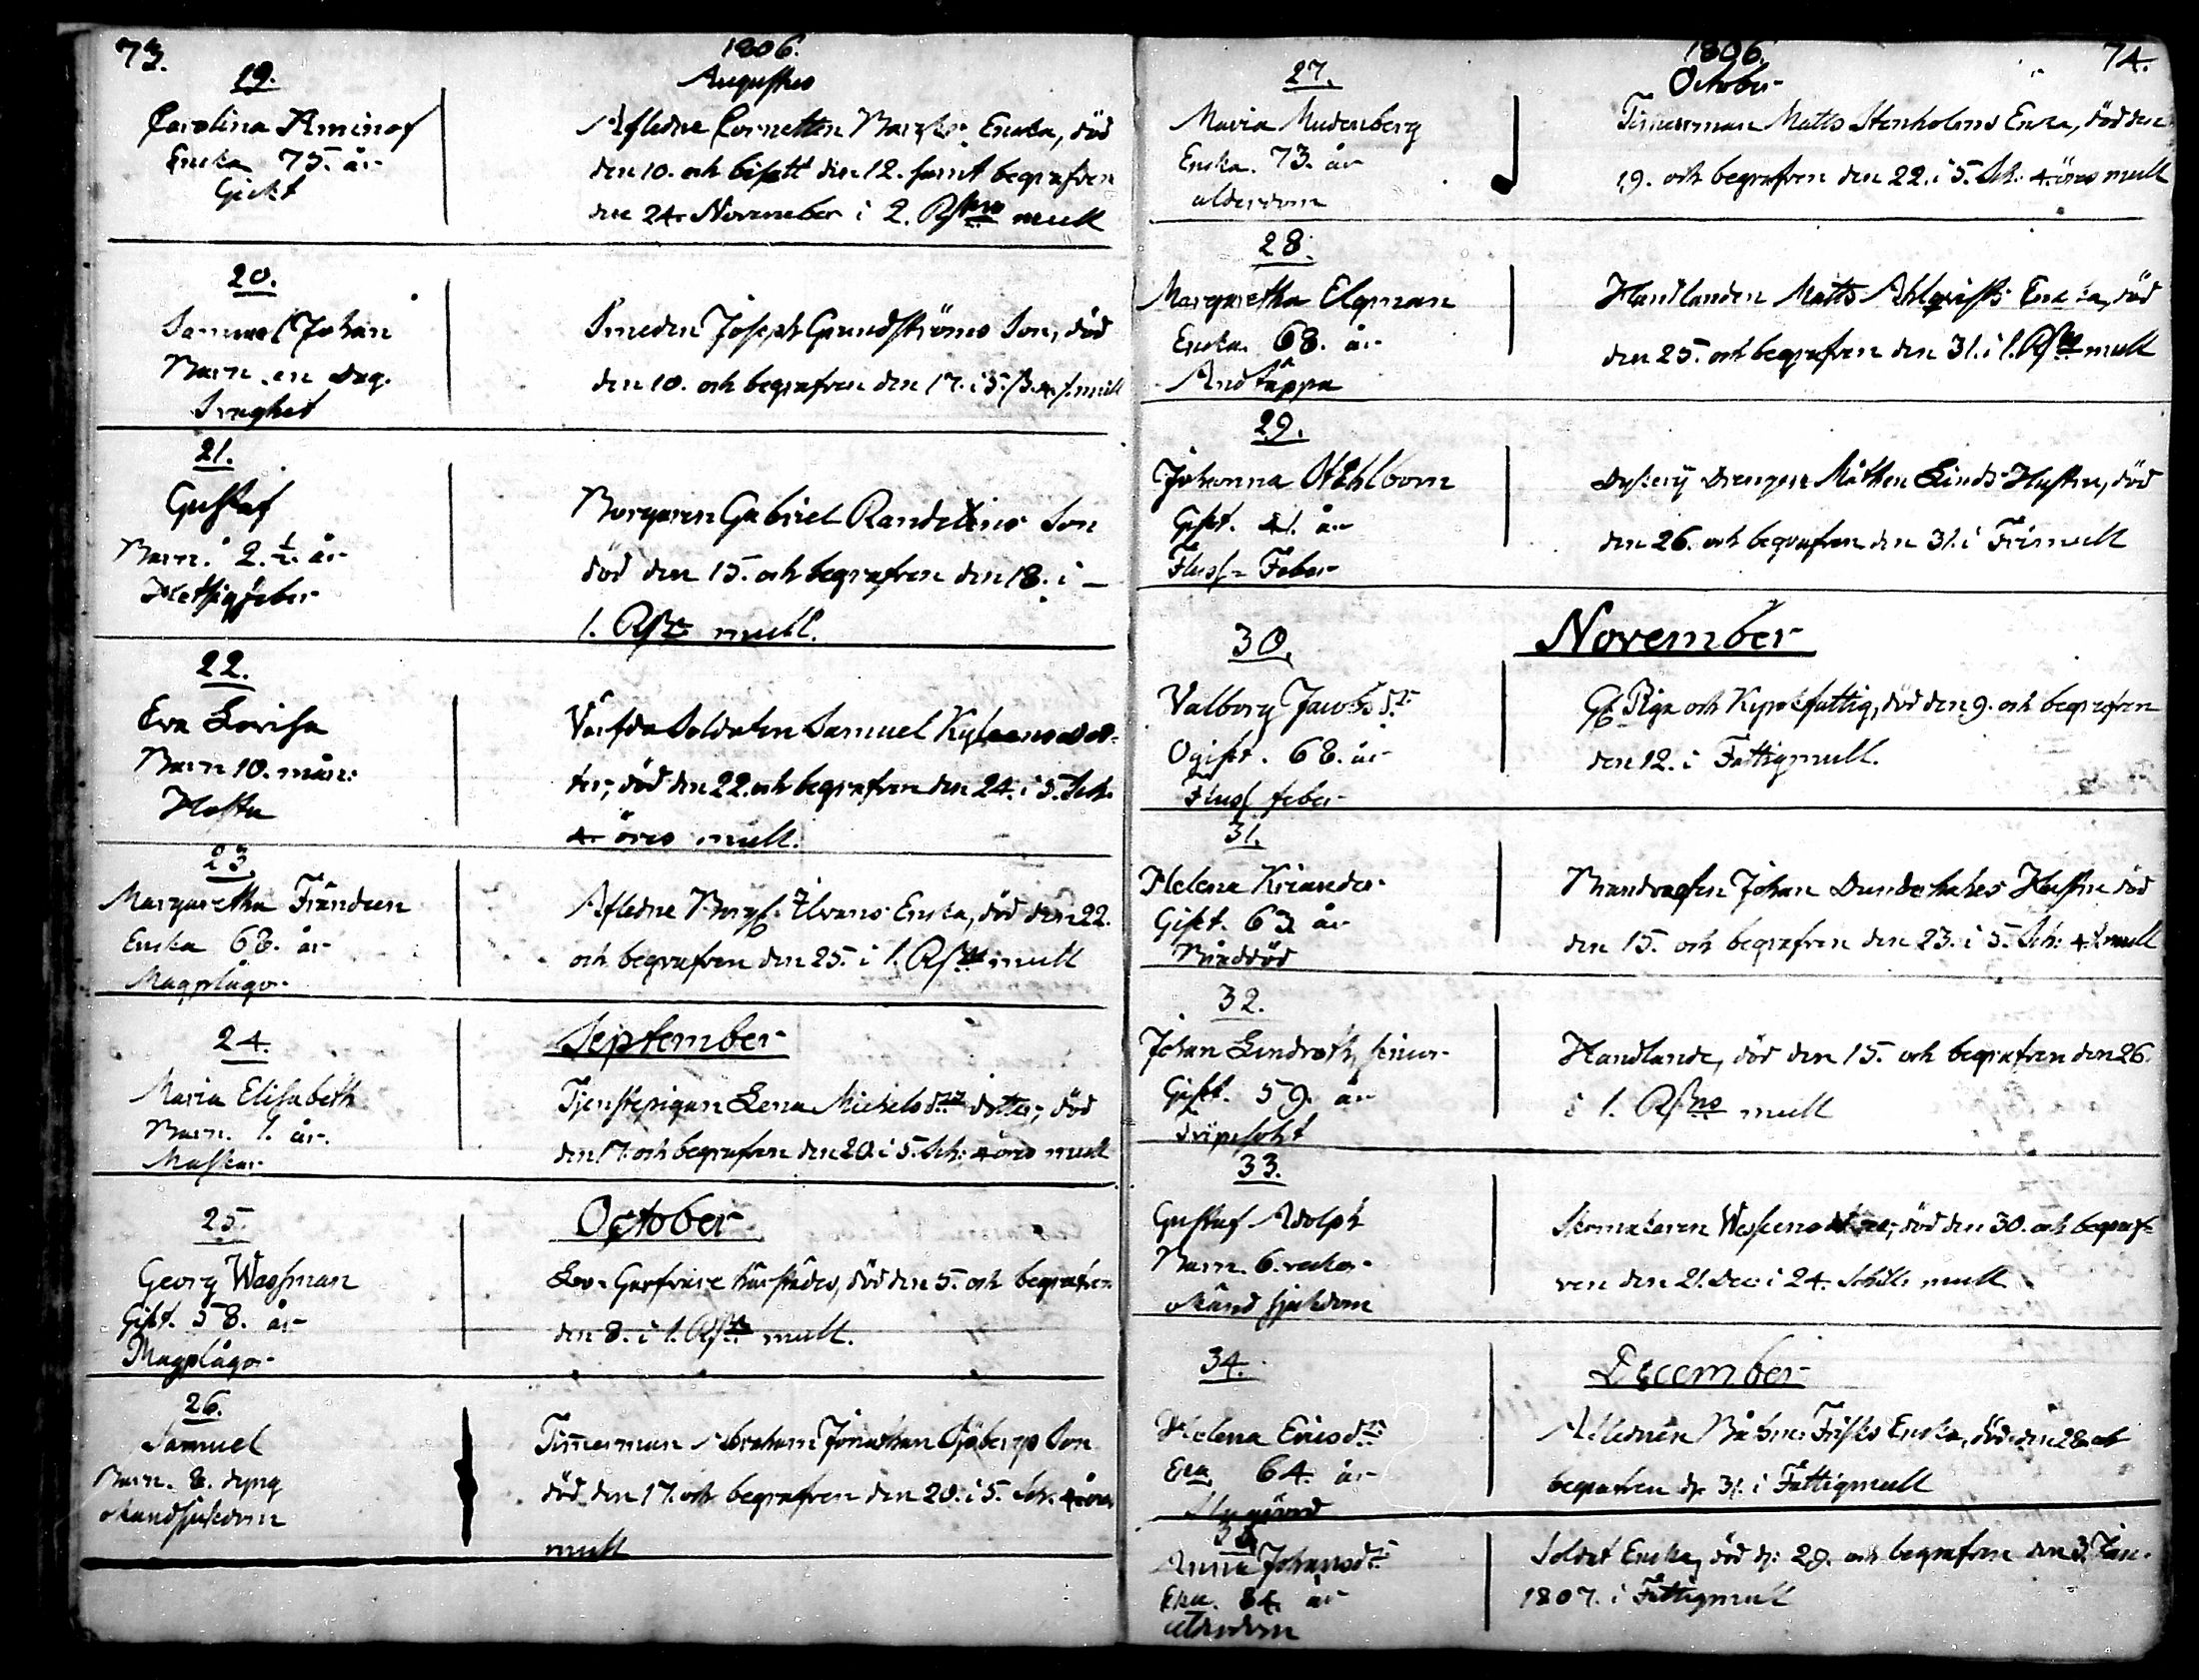 73.
1806.
Augustus
19.
Carolina Aminof
Encka 75. år
Gickt
Afledne Cornetten Enka, död
den 10. och bisatt den 12. samt begrafven
den 24. November i 2. mull
20.
Samuel Johan
Barn. en dag.
Smeden Joseph Grundströms Son, död
den 10. och begrafven den 17. i 5. mull
21.
Gustaf
Barn. 2. ½. år
Hetsigfeber
Borgaren Gabriel Randelins Son
död den 15. och begrafven den 18. i –
1. mull.
22.
Eva Lovisa
Barn 10. mån:
Hosta
Värfda Soldaten Samuel dot-
ter, död den 22. och begrafven den 24. i 5. Sch:
4. öres mull.
23.
Margaretha Frändeen
Encka 68. år
Magplågor
Afledne Enka, död den 22.
och begrafven den 25. i 1. mull
24.
Maria Elisabeth
Barn. 1. år.
Maskar
September
Tjenstepigan Lena Michelsd:r dotter, död
den 17. och begrafven den 20. i 5. Sch: 4 öres mull
25.
Georg Wassman
Gift. 58. år
Magplågor
October
död den 5. och begrafven
den 8. i 1. mull.
26.
Samuel
Barn. 8. dygn
okändsjukdom
Timerman Abraham Jonathan Sjöbergs Son
död den 17. och begrafven den 20. i 5. Sch. 4. öres
mull
1806.
74.
October
27.
Maria Mudenberg
Encka. 73. år
alderdom
Timmerman Matts Stenholms Enka, död den
19. och begrafven den 22. i 5. Sch. 4. öres mull
28.
Margaretha Elgman
Encka. 68. år
Andtäppa
Handlanden Matts Ahlqvists Encka, död
den 25. och begrafven den 31. i 1. mull
29.
Johanna Wåhlbom
Gift. 41. år
Fluss-Feber
drengen Linds Hustru, död
den 26. och begrafven den 31. i Frimull
November
30.
Valborg Jacobsd:r
Ogift. 68. år
Fluss feber
Piga och Kyrckfattig, död den 9. och begrafven
den 12. i Fattigmull.
31.
Helena Kriander
Gift. 63. år
Bråddöd
Brandvagten Johan Dunderhakes Hustru död
den 15. och begrafven den 23. i 5. Sch: 4 mull
32.
Johan Lindroth, senior
Gift. 59. år
Handlande, död den 15. och begrafven den 26.
i 1. mull
33.
Gustaf Adolph
Barn. 6. veckor
okänd sjukdom
Skomakaren död den 30. och begraf-
ven den 21. Dec: i 24. Schill: mull
34.
Helena Ericsd:r
Eka 64. år
December
Aflednen Båtsm: Frisks Encka, död den 28. och
begrafven d: 31. i Fattigmull
35.
Anna Johansd:r
Eka. 84. år
alderdom
Soldat Encka, död d: 29. och begrafven den 3. Jan.
1807. i Fattigmull